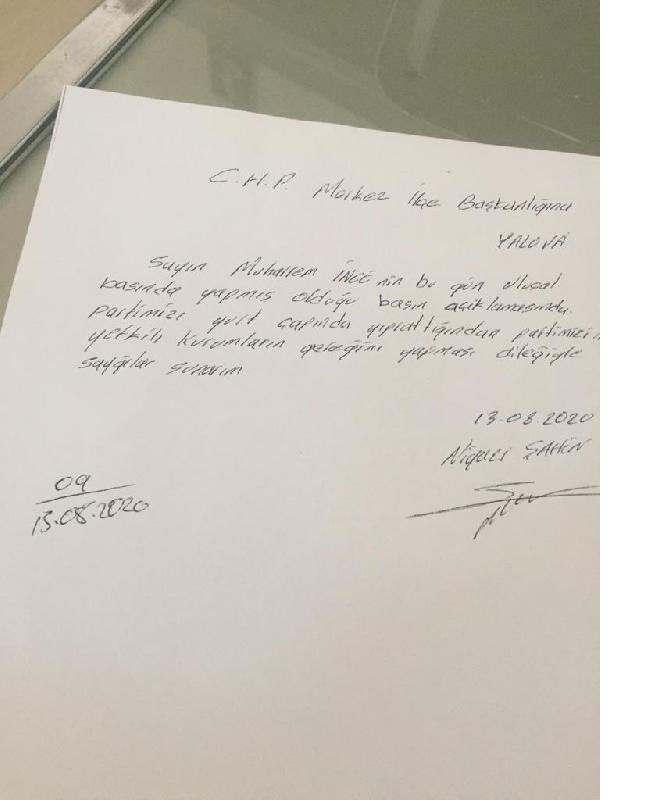 C.H.P. Merkez İlçe Başkanlığına
YALOVA
Sayın Muharrem İNCE'nin bu gün ulusal
basında yapmış olduğu basın açıklamasında.
Partimizi yurt çapında yıprattığından partimizin
yetkili kurumların gereğini yapması dileğiyle
saygılar sunarım
13.08.2020
ŞAHİN
09
13.08.2020